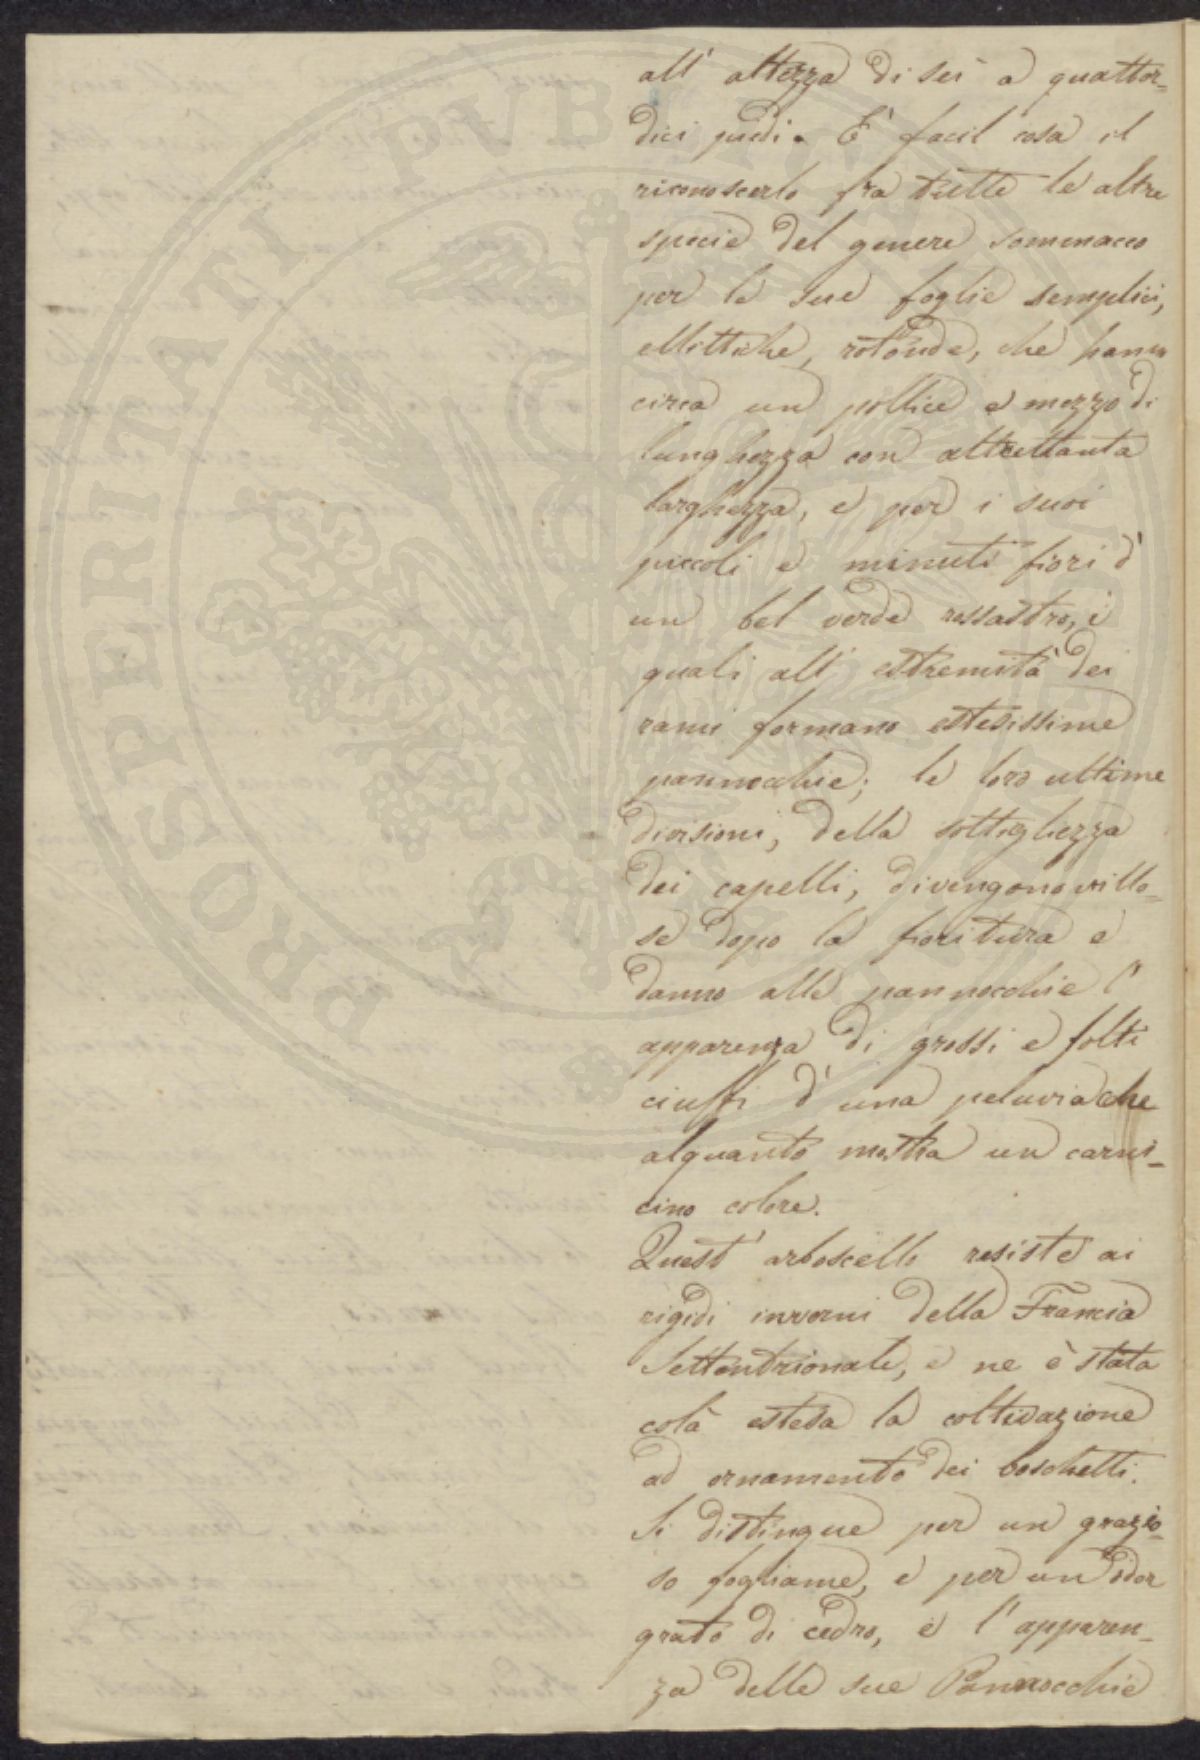 all' altezza di sei a quattor=
dici piedi. E' facil cosa il
riconoscerlo fra tutte le altre
specie del genere sommacco
per le sue foglie semplici,
ellittiche, rotonde, che hanno
circa un pollice e mezzo di
lunghezza con altrettanta
larghezza, e per i suoi
piccoli e minuti fiori d'
un bel verde rossastro, i
quali all' estremità dei
rami formano estesissime
pannocchie; le loro ultime
divisioni, della sottigliezza
dei capelli, divengono villo=
se dopo la fioritura e
danno alle pannocchie l'
apparenza di grossi e folti
ciuffi d' una peluvia che
alquanto mostra un carni=
cino colore.
Quest' arboscello resiste ai
rigidi inverni della Francia
Settentrionale, e ne è stata
colà estesa la coltivazione
ad ornamento dei boschetti.
Si distingue per un grazio=
so fogliame, e per un odor
grato di cedro, e l' apparen=
za delle sue Pannocchie
PROSPERITATI PUBLICAE